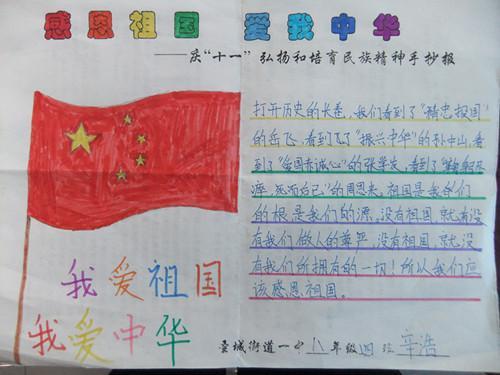 感恩祖国 爱我中华
——庆“十一”弘扬和培育民族精神手抄报
打开历史的长卷,我们看到了“精忠报国”
的岳飞,看到了“振兴中华”的孙中山,看
到了“爱国赤诚心”的张学友,看到了“鞠躬尽
瘁 死而后已”的周恩来。祖国是我们
的根是我们的源,没有祖国,就没
有我们做人的尊严,没有祖国,就没
有我们所拥有的一切!所以我们应
该感恩祖国。
我爱祖国
我爱中华
街道一中 八年级 四 班 辛浩